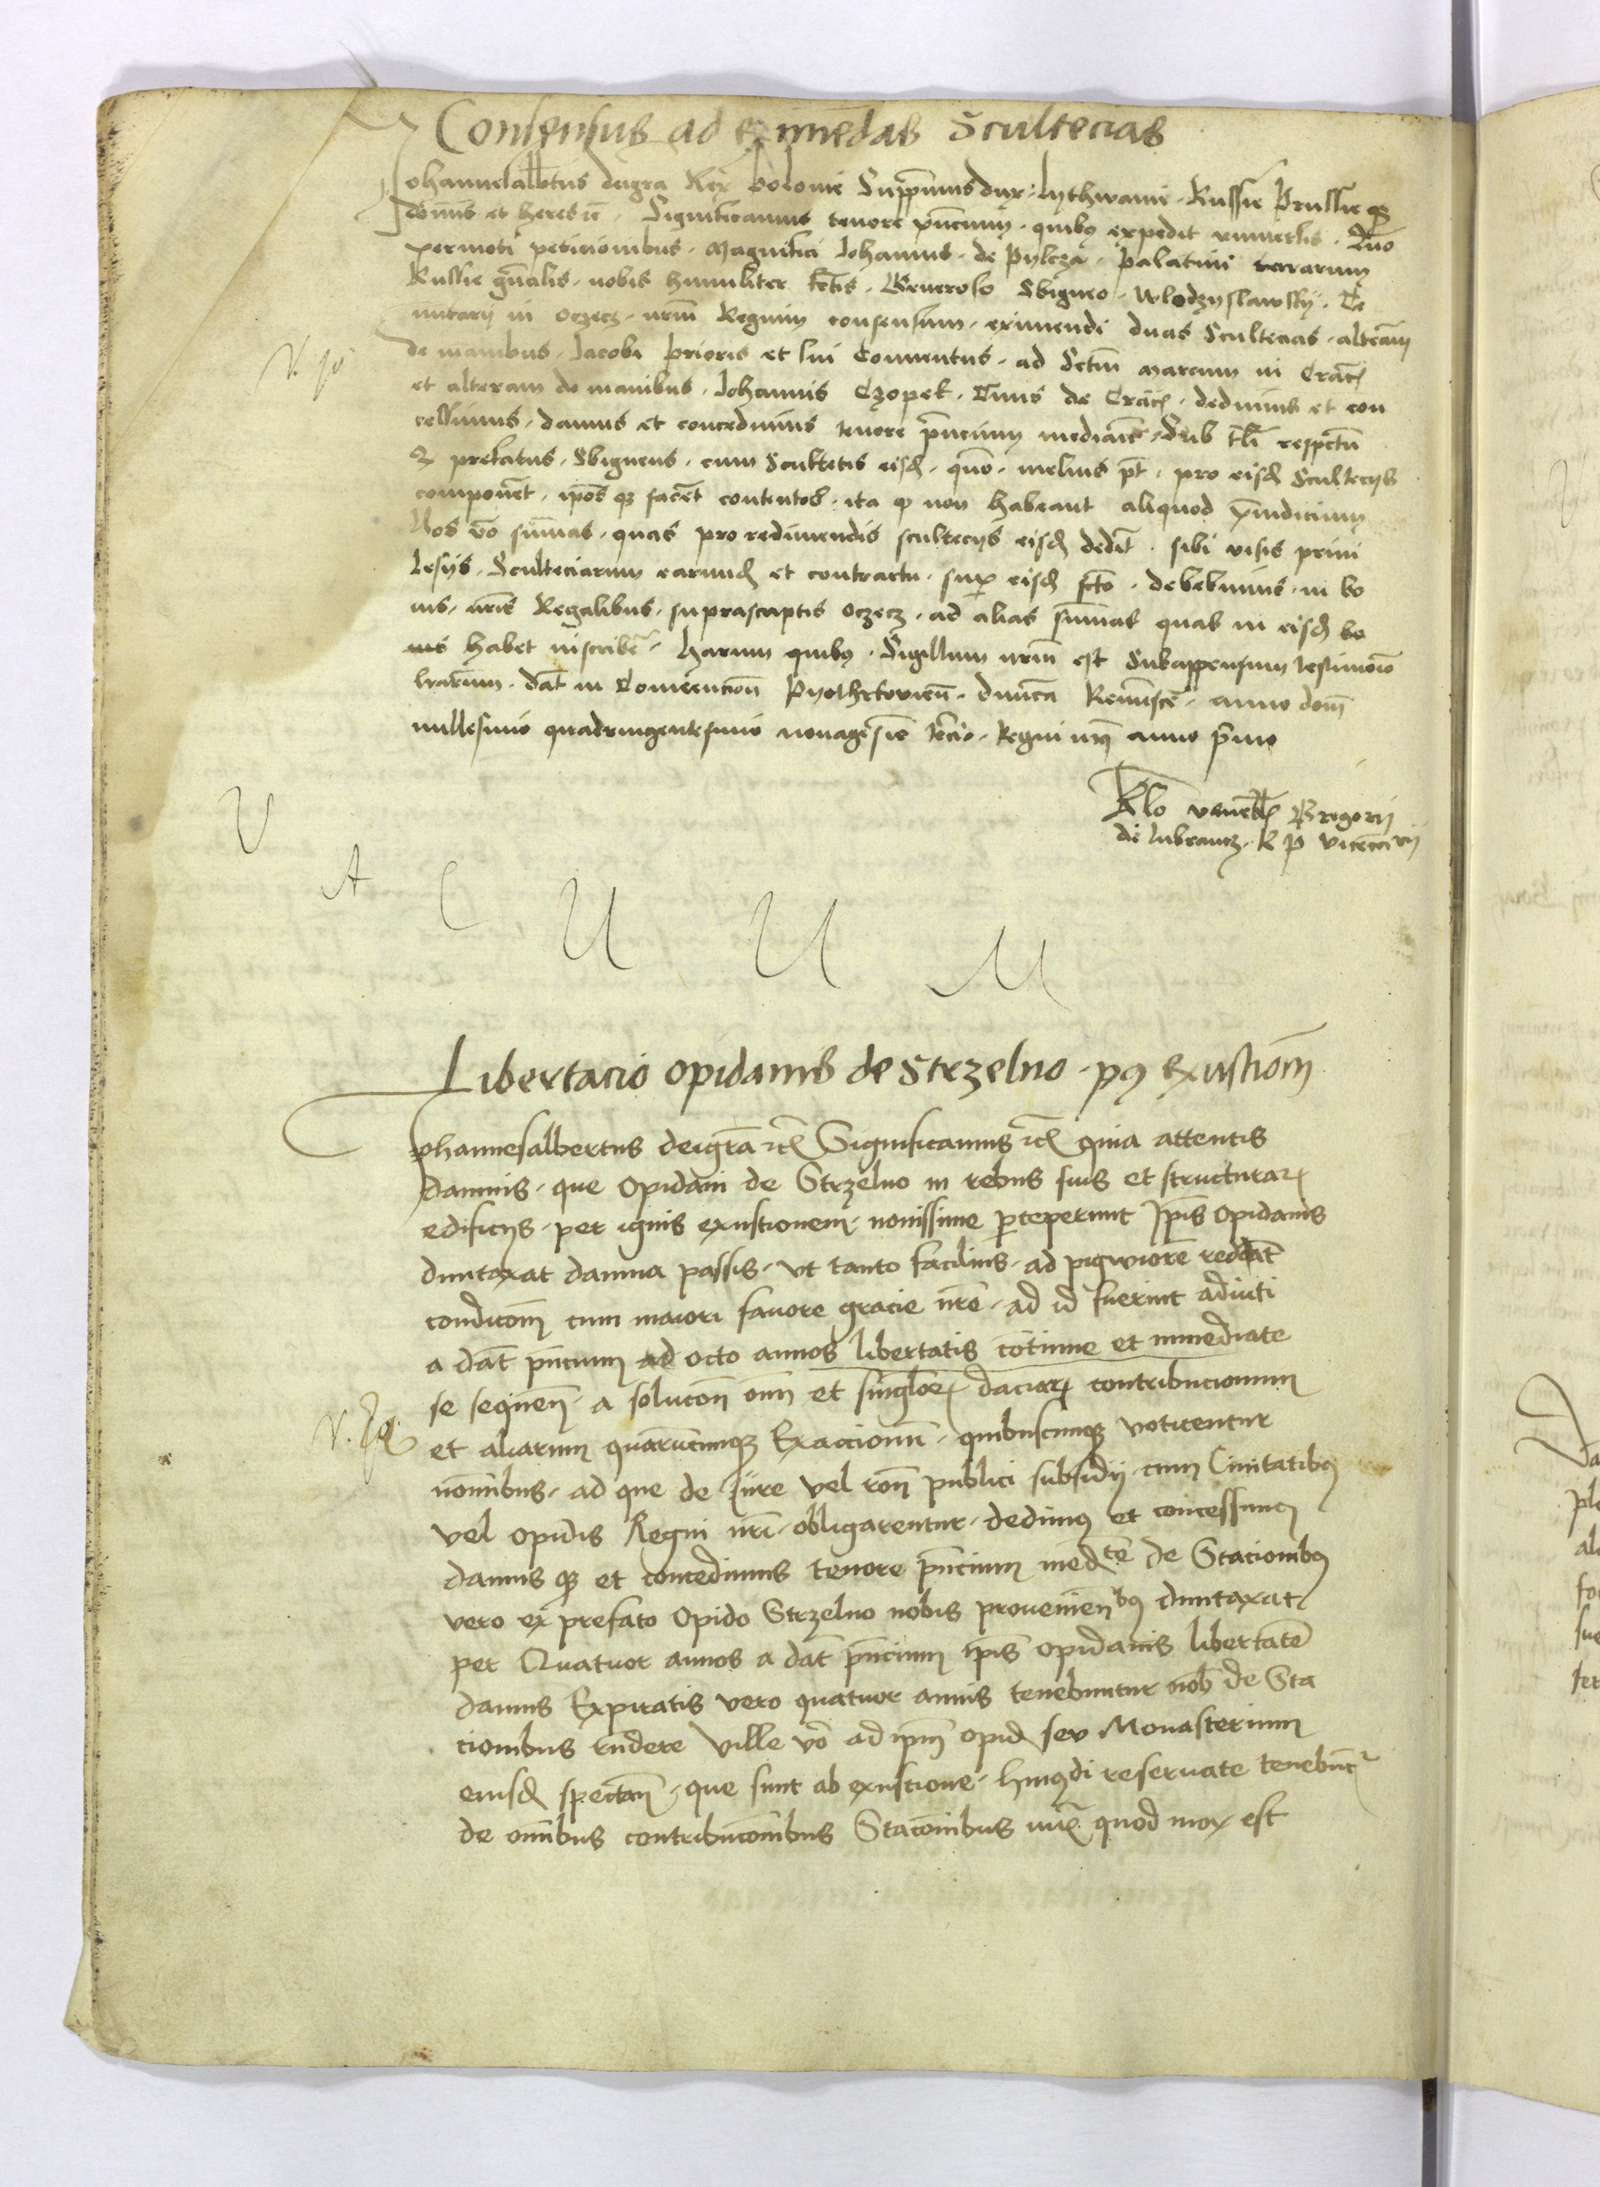 Consensus ad eximēdas Scultecias
Johannesalbertus deigra Rex Polonie Supprem̄us dux Lythwanie Russie Prussie qȝ
dominus et heres rc̄ Significamus tenore pñcium quibȝ expedit vniuersis Quō
permoti peticionibus Magnifici Johannis de Pylcza Palatini terrarum
Russie gn̄alis nobis humiliter fcīs Generoso Sbigneo Wlodzyslawsky Te
nutarij in Oczecz nr̄m Regium consensum eximendi duas Scultecias alterā
de manibus Jacobi prioris et sui Conuentus ad Sctm̄ Marcum in Crac̄
et alteram de manibus Johannis Czopek Ciuis de Crac̄ dedimus et con
cessimus damus et concedimus tenore pn̄cium mediātē Sub tl̄i respectu
qȝ prefatus Sbigneus cum Scultetis eisdȝ quō melius pt̄ pro eisdȝ Scultecijs
componet ip̄os qȝ faciet contentos ita qȝ non habeant aliquod p̄iudicium
Nos vō summas quas pro redimendis scultecijs eisdȝ dedit sibi visis priui
legijs Sculteciarum earundȝ et contractu sup̄ eisdȝ fcto debebimus in bo
nis nr̄is Regalibus suprascriptis Oczecz ad alias sum̄as quas in eisdȝ bo
nis habet inscribē Harum quibȝ Sigillum nr̄m est Subappensum testimōio
lrārum Dat̄ in Conuencion̄ Pyothrkouien̄ dn̄ica Remis̄cē anno dom̄
millesimo quadringentesimo nonagesīo tercio Regni nr̄i anno pr̄imo
Rlō venerb̄ Gregorij
de Lubrancz R P Vicecan̄rij
V A C U U M
Libertacio opidanis de Strzelno pȝ exustiom̄
Johannesalbertus deigrā rc̄ Significamus rc̄ quia attentis
damnis que Opidani de Strzelno in rebus suis et structurarȝ
edificijs per ignis exustionem nouissime p̄ceperunt Ip̄is Opidanis
duntaxat damna passis vt tanto facilius ad pigwiorē reddāt
condicōm̄ cum maiori fauore gracie nr̄e ad id fuerint adiuti
a dat̄ pn̄cium ad octo annos libertatis cōtinue et immediate
se sequen̄ a solucōn̄ om̄i et singlorȝ daciarȝ contribucionum
et aliarum quarūcumqȝ Exaccionū quibuscumqȝ vocitentur
nōinibus ad que de iure vel rōn̄ publici subsidij cum Ciuitatibȝ
vel opidis Regni nr̄i obligarentur dedimȝ et concessimȝ
damus qȝ et concedimus tenore pn̄cium medtē de Stacionibȝ
vero ex prefato Opido Strzelno nobis prouenienbȝ duntaxat
per Quatuor annos a dat̄ pn̄cium ip̄is opidanis libertatē
damus Expiratis vero quatuor annis tenebuntur nob̄ de Sta
cionibus rndere Ville vō ad ip̄m opidȝ seu Monasterium
eiusdȝ spectan̄ que sunt ab exustione hmȝdi reseruate tenebūtr
de om̄ibus contribucōnibus Stacōnibus quod mox est